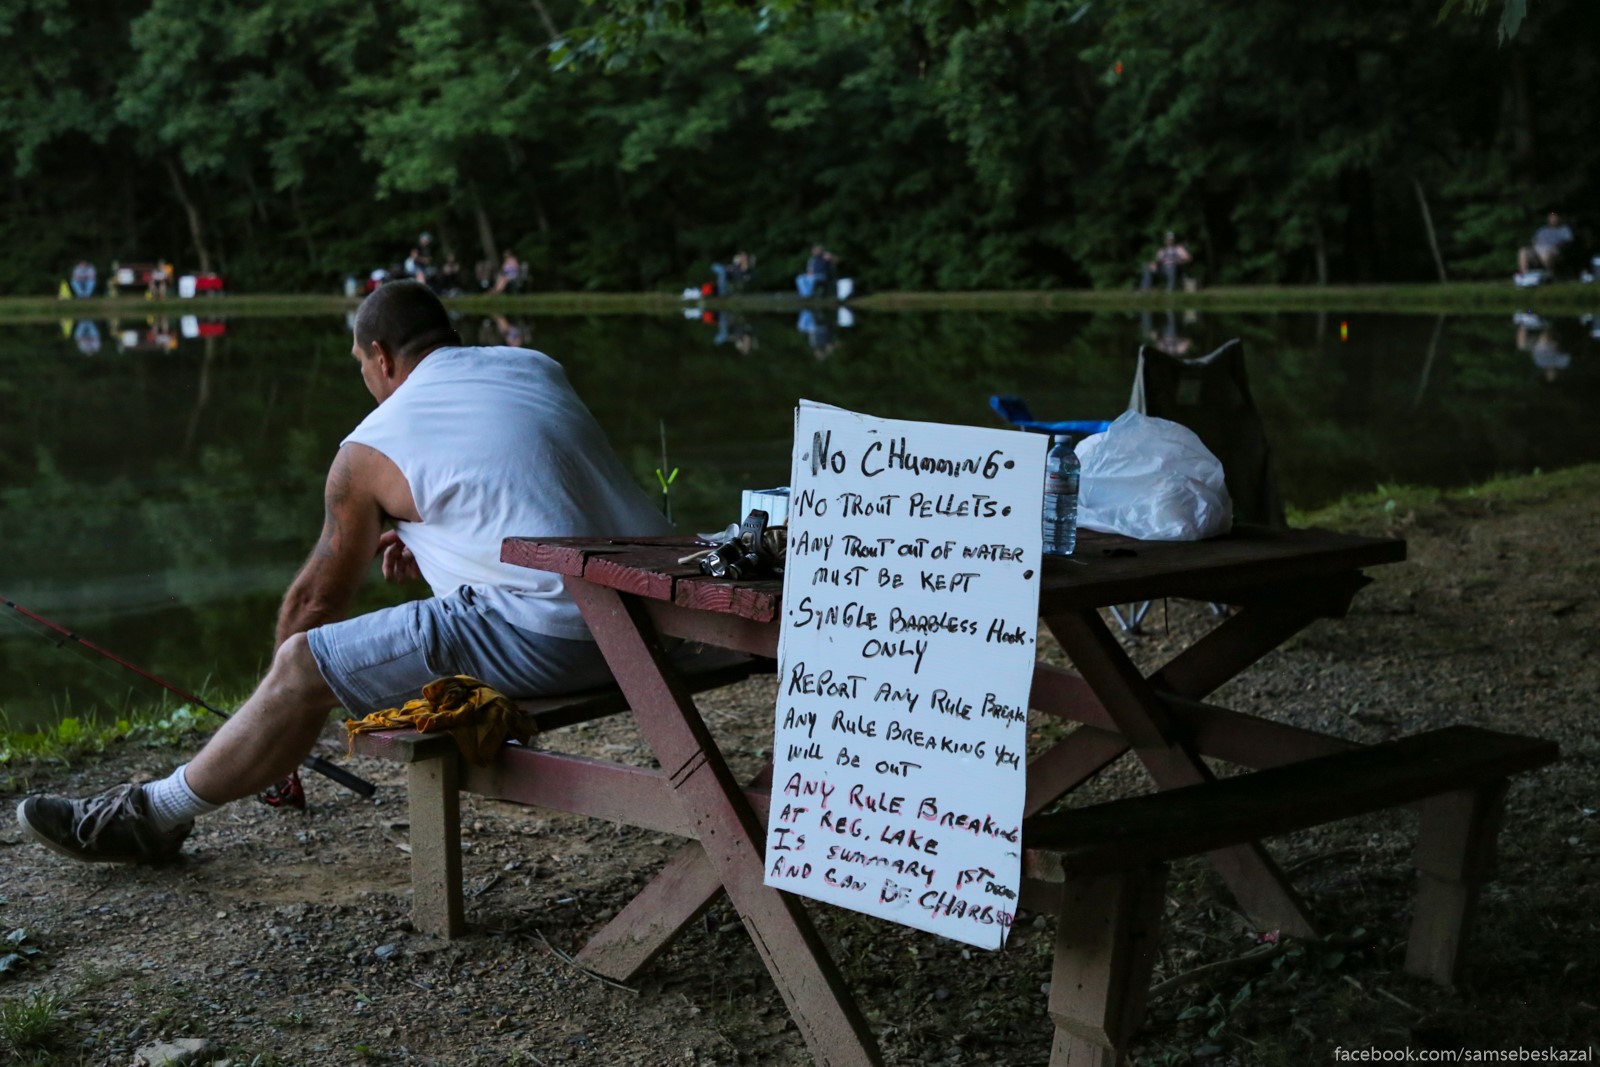 · NO CHUMMING ·
· NO TROUT PELLETS ·
· ANY TROUT OUT OF WATER
MUST BE KEPT ·
· SYNGLE BARBLESS HOOK ·
ONLY
REPORT ANY RULE BREAK
ANY RULE BREAKING YOU
WILL BE OUT
ANY RULE BREAKING
AT REG. LAKE
IS SUMMARY 1ST DEGREE
AND CAN BE CHARGED
facebook.com/samsebeskazal